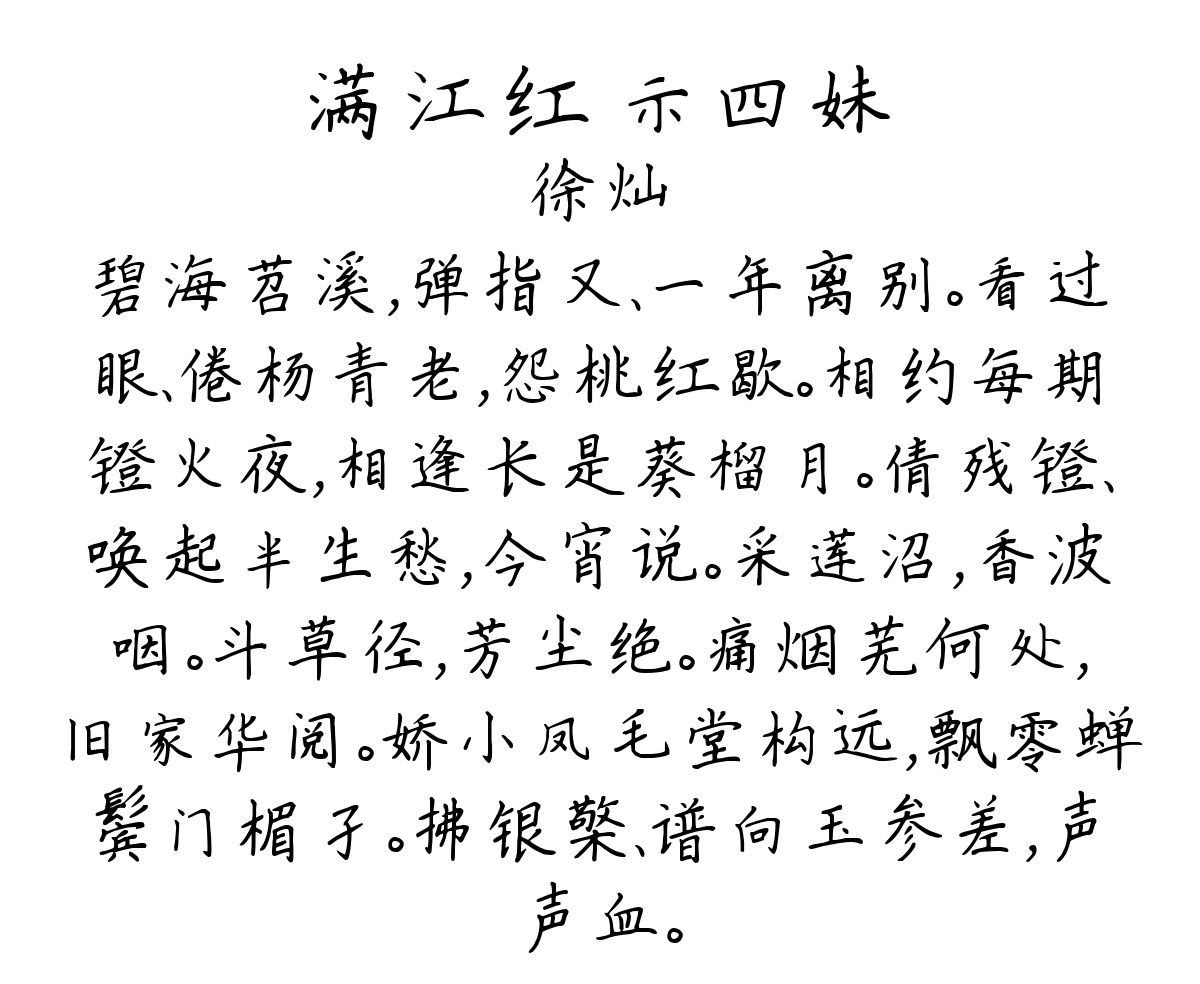 满江红 示四妹
徐灿
碧海苕溪,弹指又、一年离别。看过
眼、倦杨青老,怨桃红歇。相约每期
镫火夜,相逢长是葵榴月。倩残镫、
唤起半生愁,今宵说。采莲沼,香波
咽。斗草径,芳尘绝。痛烟芜何处,
旧家华阅。娇小凤毛堂构远,飘零蝉
鬓门楣孑。拂银檠、谱向玉参差,声
声血。